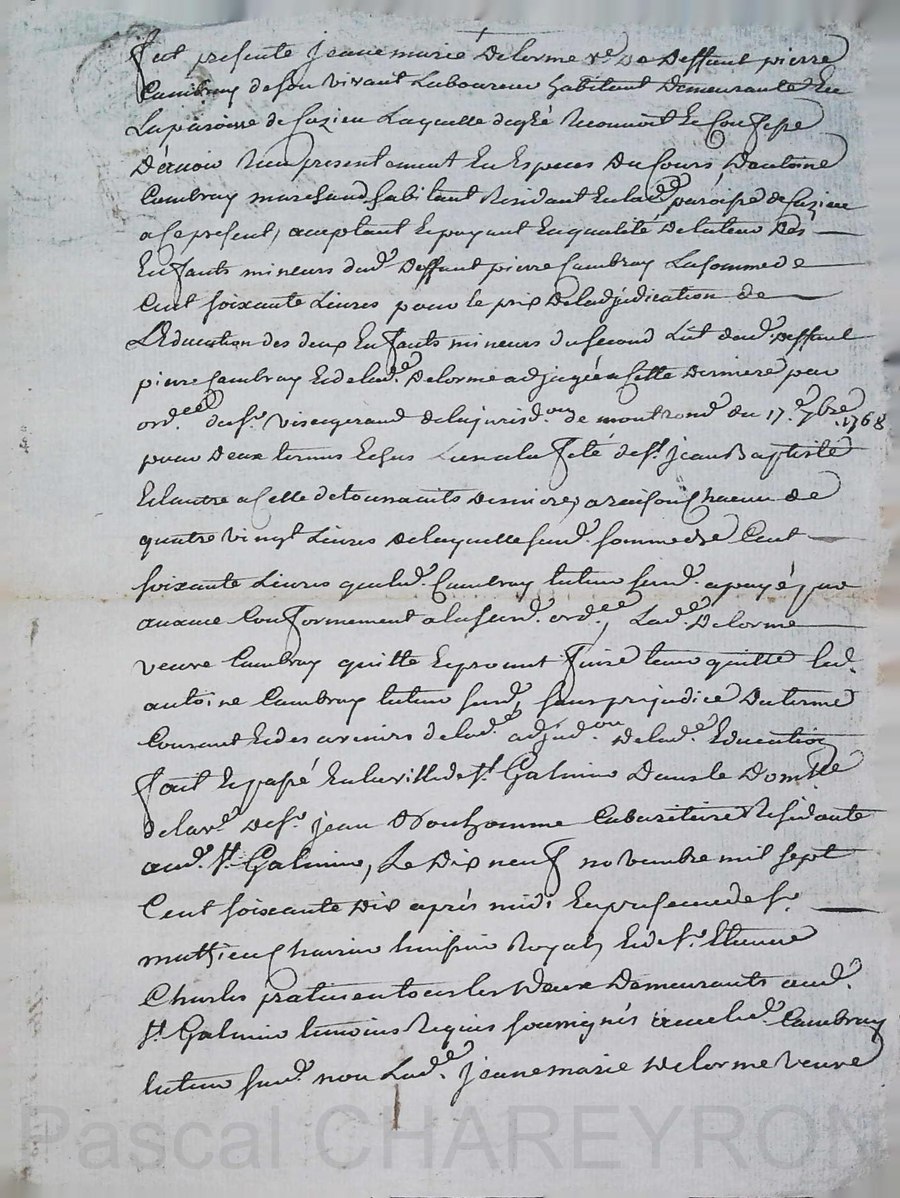 fut presente jeane marie Delorme v.e De Deffunt pierre
Cambray de son vivant Laboureur habitant Demeurante En
La paroisse de Cuzieu Laquelle de gré Reconnoit Et Confesse
D'avoir Reçu presentement En Especes Du Cours, D'antoine
Cambray marchand habitant Residant En lad.e paroisse de Cuzieu
a Ce present, acceptant Et payant En qualité De tuteur Des
Enfants mineurs dud. Deffunt pierre Cambray La somme de
Cent soixante Livres pour le prix De ladjudication de
L'Education des deux Enfants mineurs du second Lit dud. Deffunt
pierre Cambray Et de lad.e Delorme adjugée a Cette Derniere par
ord.ce du s.r visegerand de la jurisd.on de montrond du 17.e 7bre 1768
pour Deux termes Echus Lun a la Fete de s.t jean Baptiste
Et lautre a Celle de toussaints Dernieres, a raison Chacun de
quatre vingt Livres de laquelle susd. somme de Cent
soixante Livres que led. Cambray tuteur susd. a payé par
avance Conformement a la susd. ord.ce, Lad.e Delorme
veuve Cambray quitte Et promet faire tenir quitte led.
antoine Cambray tuteur susd. sans prejudice Du terme
Courant Et des avenirs de lad.e adjud.on De lad.e Education
fait Et passé En la ville de s.t Galmier Dans le Dom.lle
de la v.e De s.r jean Bonhomme Cabaretiere Residante
aud. s.t Galmier, Le Dix neuf novembre mil sept
Cent soixante Dix après midi En presence de s.r
mathieu huissier Royal, Et de s.r Etienne
Charles praticien tous les Deux Demeurants aud.
s.t Galmier temoins Requis soussignés avec led. Cambray
tuteur susd. non Lad.e jeane marie Delorme veuve
Pascal CHAREYRON